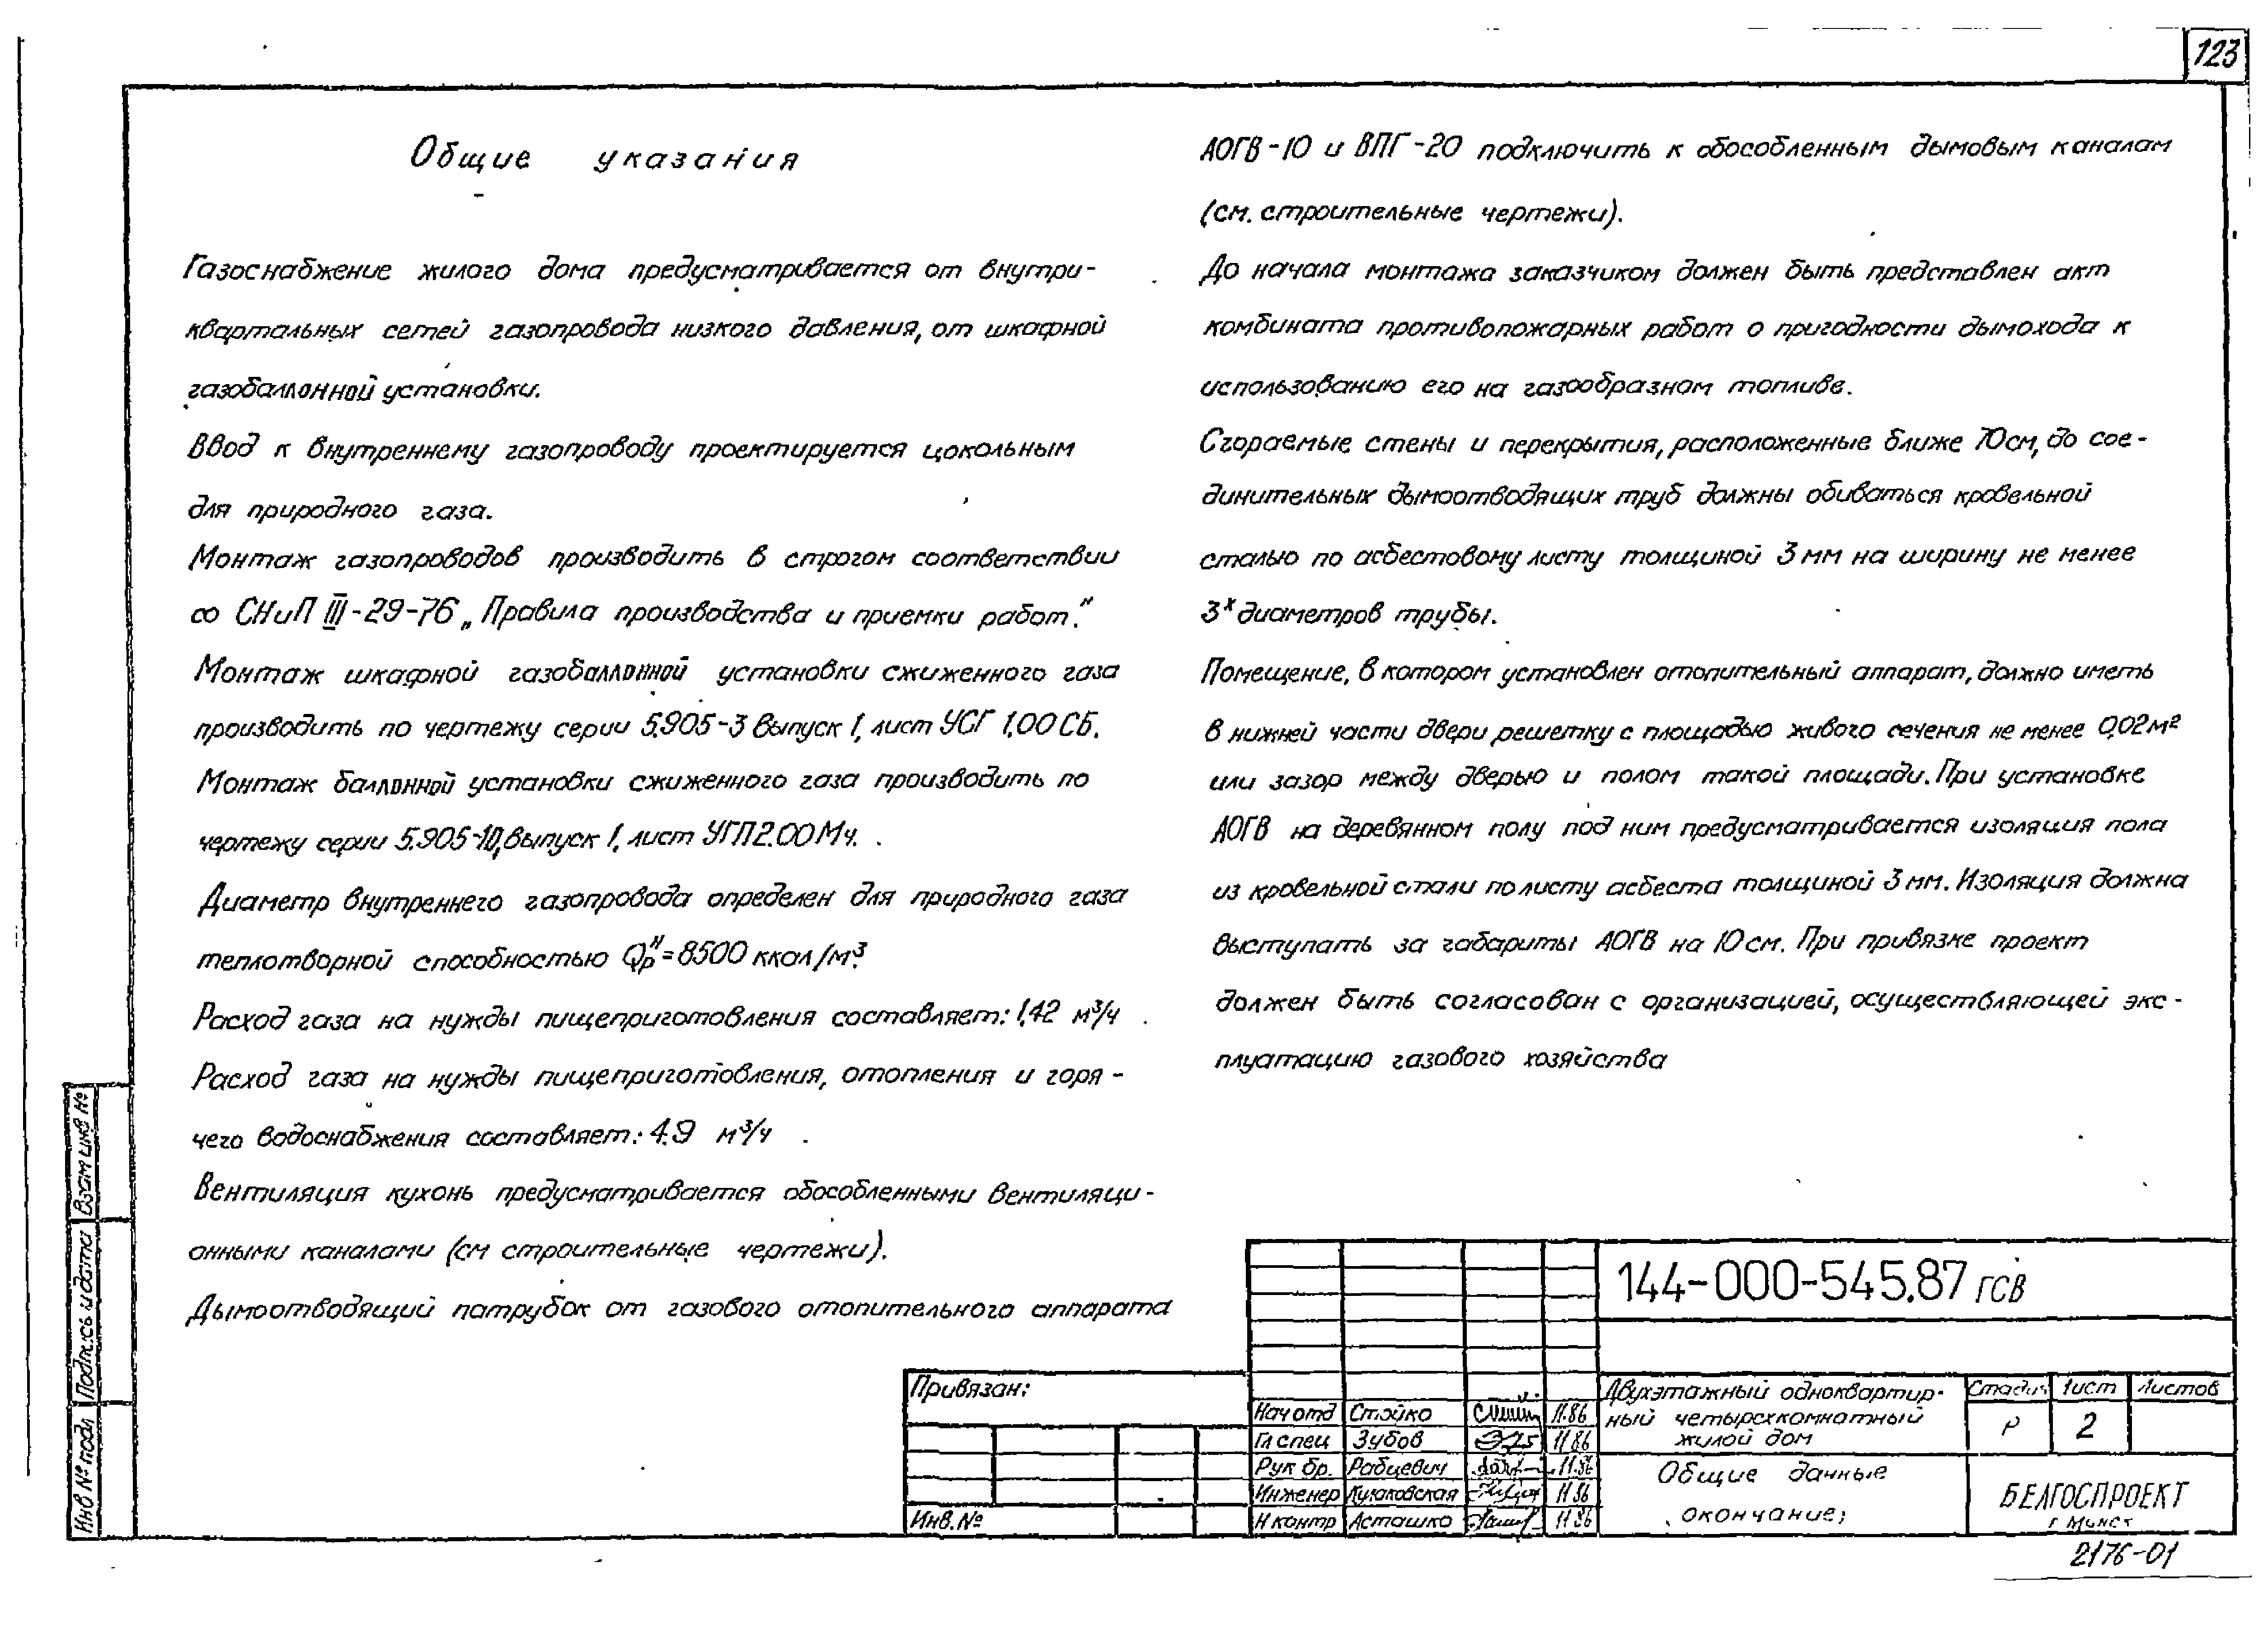 123
Общие указания
Газоснабжение жилого дома предусматривается от внутри-
квартальных сетей газопровода низкого давления, от шкафной
газобаллонной установки.
Ввод к внутреннему газопроводу проектируется цокольным
для природного газа.
Монтаж газопроводов производить в строгом соответствии
со СНиП III-29-76 „Правила производства и приемки работ."
Монтаж шкафной газобаллонной установки сжиженного газа
производить по чертежу серии 5.905-3 выпуск 1, лист УСГ 1.00 СБ.
Монтаж баллонной установки сжиженного газа производить по
чертежу серии 5.905-10, выпуск 1, лист УГП2.00 МЧ.
Диаметр внутреннего газопровода определен для природного газа
теплотворной способностью Qрн=8500 ккал/м³.
Расход газа на нужды пищеприготовления составляет: 1,42 м³/ч
Расход газа на нужды пищеприготовления, отопления и горя-
чего водоснабжения составляет: 4.9 м³/ч
Вентиляция кухонь предусматривается обособленными вентиляци-
онными каналами (см строительные чертежи).
Дымоотводящий патрубок от газового отопительного аппарата
АОГВ-10 и ВПГ-20 подключить к обособленным дымовым каналам
(см. строительные чертежи).
До начала монтажа заказчиком должен быть представлен акт
комбината противопожарных работ о пригодности дымохода к
использованию его на газообразном топливе.
Сгораемые стены и перекрытия, расположенные ближе 70см, до сое-
динительных дымоотводящих труб должны обиваться кровельной
сталью по асбестовому листу толщиной 3 мм на ширину не менее
3х диаметров трубы.
Помещение, в котором установлен отопительный аппарат, должно иметь
в нижней части двери решетку с площадью живого сечения не менее 0,02м²
или зазор между дверью и полом такой площади. При установке
АОГВ на деревянном полу под ним предусматривается изоляция пола
из кровельной стали по листу асбеста толщиной 3 мм. Изоляция должна
выступать за габариты АОГВ на 10 см. При привязке проект
должен быть согласован с организацией, осуществляющей экс-
плуатацию газового хозяйства
Взам инв №
Подпись и дата
Инв № подл
Привязан:
Инв. №
Нач отд Стойко 11.86
Гл спец Зубов 11 86
Рук бр. Рабцевич 11.86
Инженер 11 86
Н контр Асташко 11 86
144-000-545.87 ГСВ
Двухэтажный одноквартир-
ный четырехкомнатный
жилой дом
Стадия Лист Листов
Р 2
Общие данные
окончание;
БЕЛГОСПРОЕКТ
г Минск
2176-01